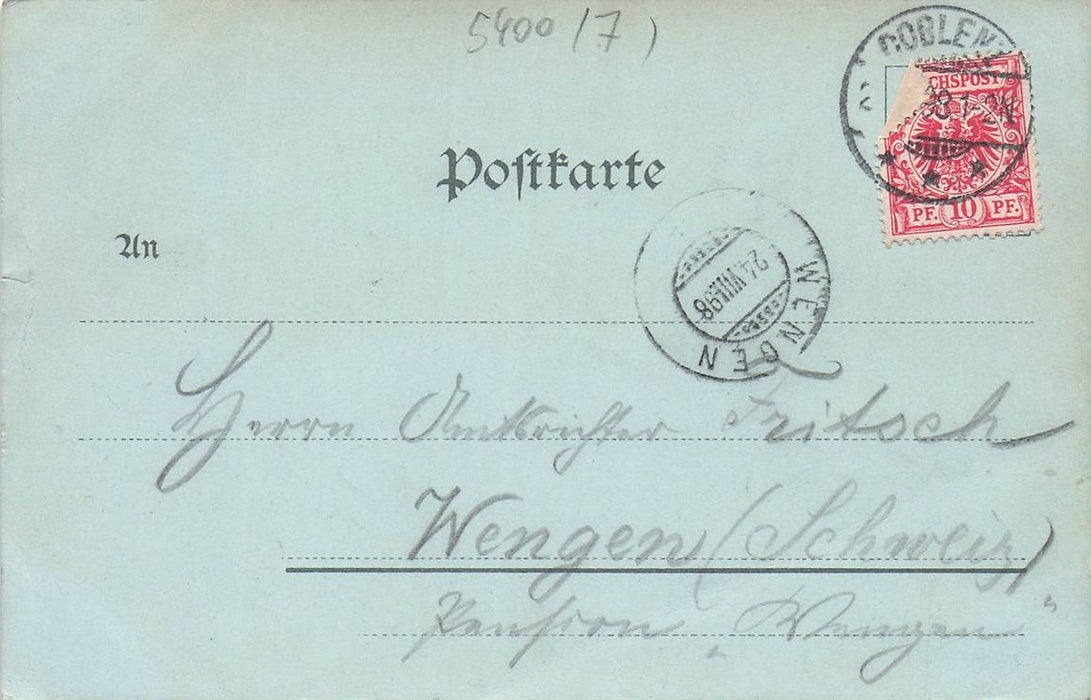 5400 /7)
COBLEN
CHSPOST
98 1-2N
PF. 10 PF.
Postkarte
An
WENGEN
24.VII.98
Herrn Amtsrichter Fritsch
Wengen (Schweiz)
Pension „Wengen“